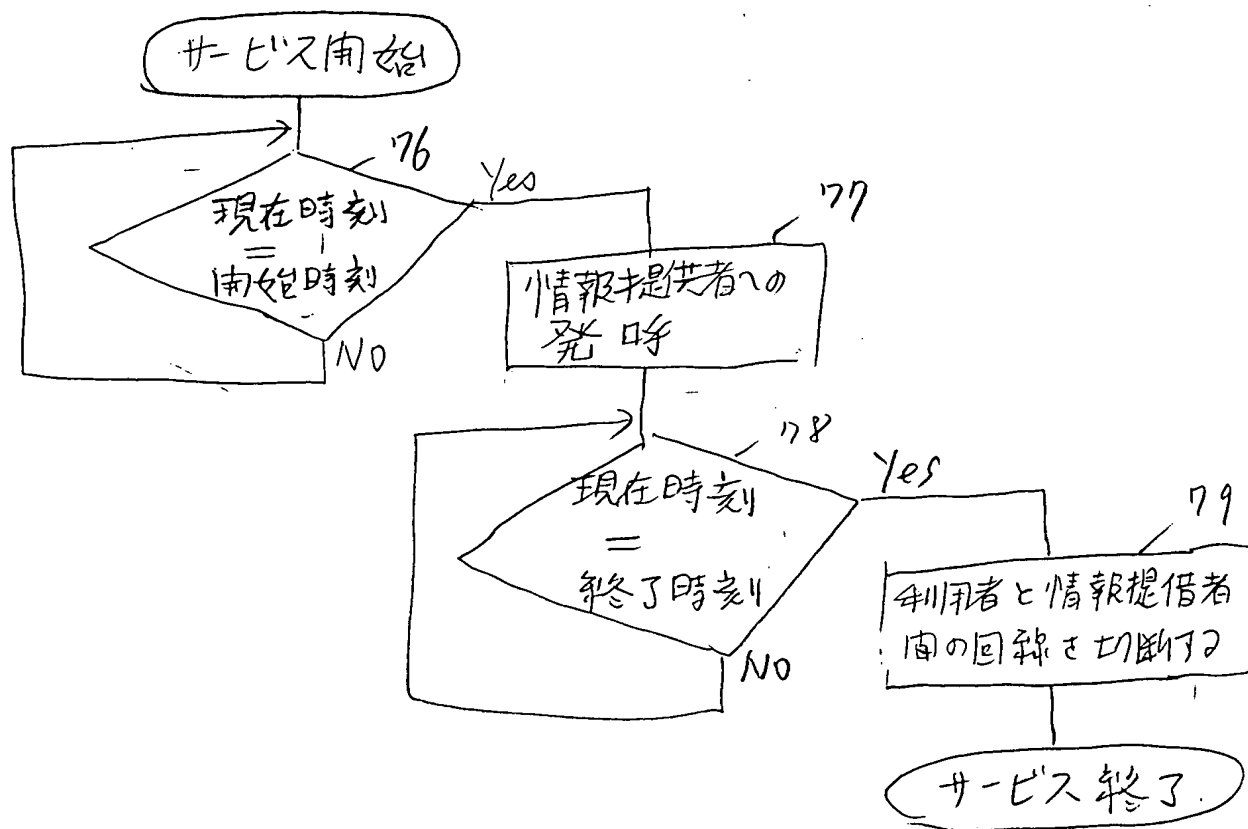 サービス開始
76
Yes
現在時刻
=
開始時刻
NO
77
情報提供者への
発呼
78
Yes
現在時刻
=
終了時刻
NO
79
利用者と情報提借者
間の回線を切断する
サービス終了.